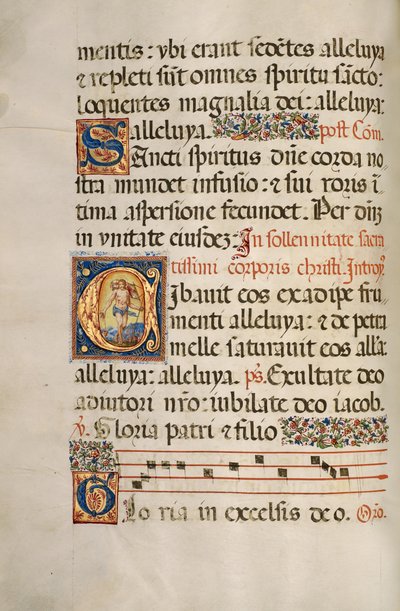 mentis: vbi erant sedẽtes alleluya
⁊ repleti sũt omnes spiritu sãcto:
loquentes magnalia dei: alleluya:
alleluya. post Cõm.
SAncti spiritus dñe corda no
stra mundet infusio: ⁊ sui roris ĩ
tima aspersione fecundet. Per dñz
in vnitate eiusdez: In sollennitate sacra
tissimi corporis christi. Introy⁹
Cibauit eos ex adipe fru
menti alleluya: ⁊ de petra
melle saturauit eos alla:
alleluya: alleluya. ps. Exultate deo
adiutori nr̃o: iubilate deo iacob.
℣. Gloria patri ⁊ filio
Glo ria in excelsis deo. Orõ.